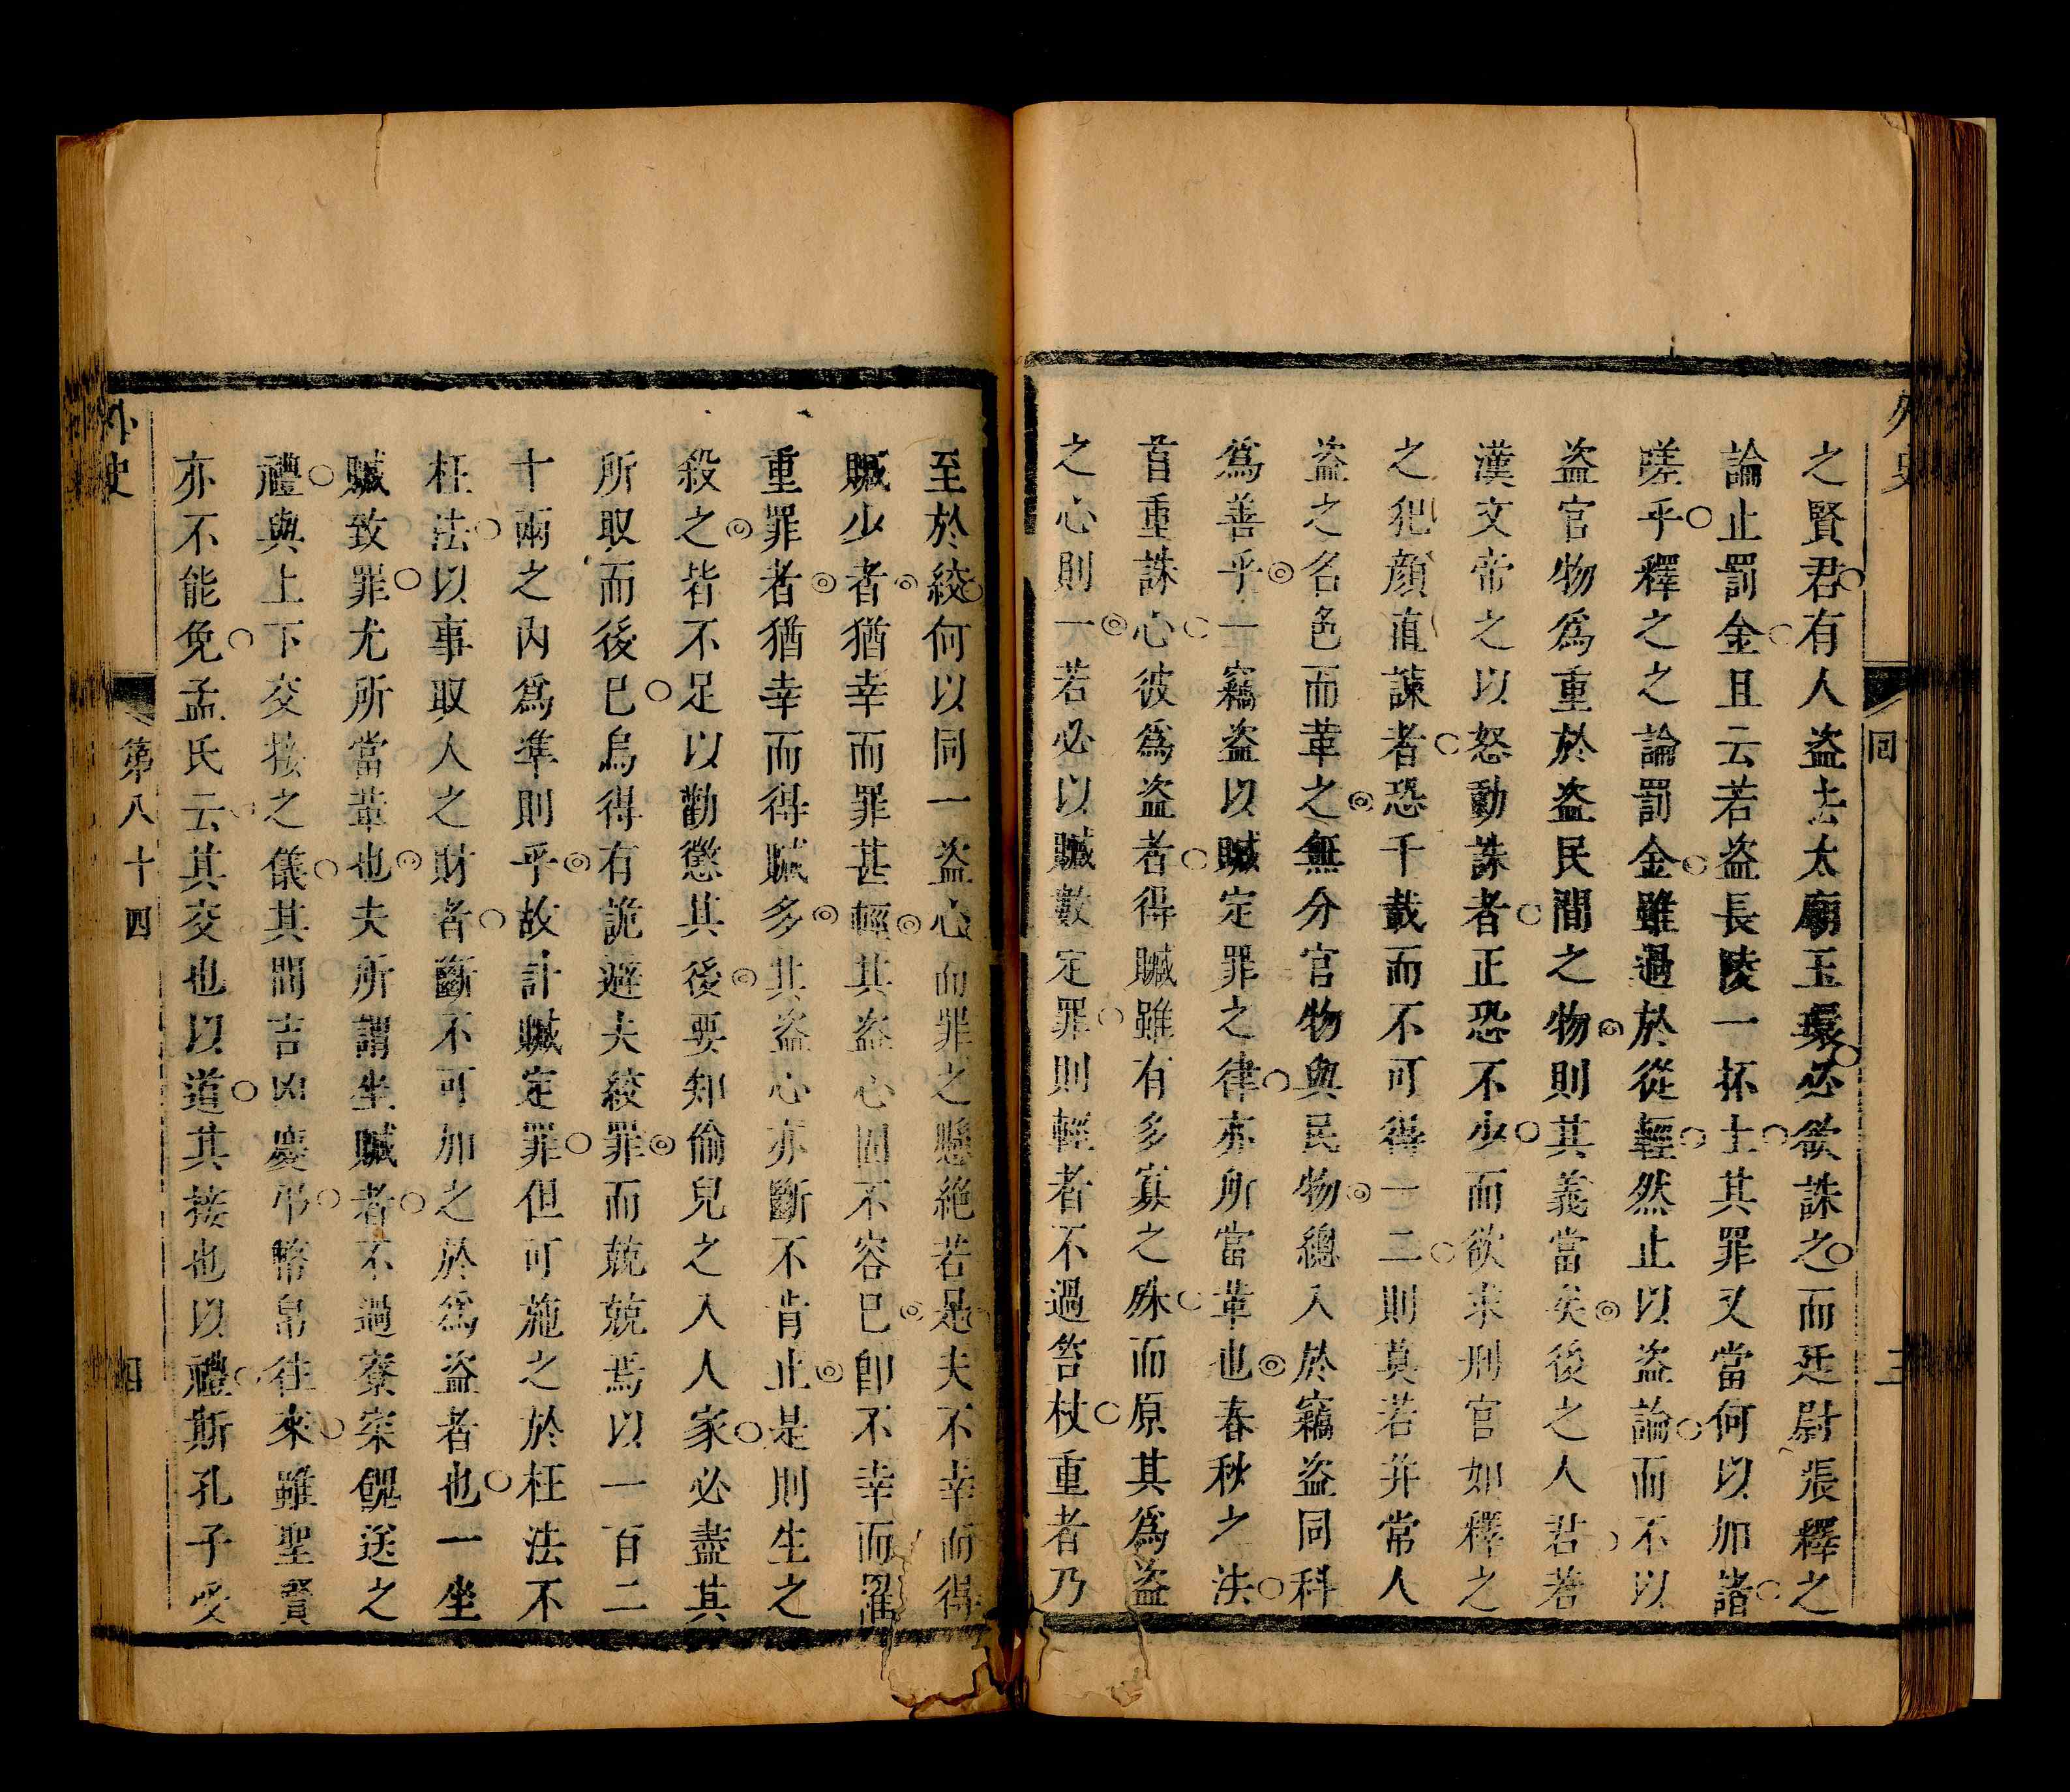 之賢君有人盗去太廟玉環必欲誅之而廷尉張釋之
論止罰金且云若盗長陵一抔土其罪又當何以加諸
嗟乎釋之之論罰金雖過於從輕然止以盗論而不以
盗官物爲重於盗民間之物則其義當矣後之人君若
漢文帝之以怒動誅者正恐不少而欲求刑官如釋之
之犯顔直諫者恐千載而不可得一二則莫若并常人
盗之名色而革之無分官物與民物總入於竊盗同科
爲善乎一竊盗以贓定罪之律亦所當革也春秋之法
首重誅心彼爲盗者得贓雖有多寡之殊而原其爲盗
之心則一若必以贓數定罪則輕者不過笞杖重者乃
至於絞何以同一盗心而罪之懸絶若是夫不幸而得
贓少者猶幸而罪甚輕其盗心固不容已即不幸而罹
重罪者猶幸而得贓多其盗心亦斷不肯止是則生之
殺之皆不足以勸懲其後要知偷兒之入人家必盡其
所取而後已烏得有詭避夫絞罪而兢兢焉以一百二
十兩之內爲準則乎故計贓定罪但可施之於枉法不
枉法以事取人之財者斷不可加之於爲盗者也一坐
贓致罪尤所當革也夫所謂坐贓者不過寮寀餽送之
禮與上下交接之儀其間吉凶慶弔幣帛往來雖聖賢
亦不能免孟氏云其交也以道其接也以禮斯孔子受
外史
第八十四
四
外史
回
三